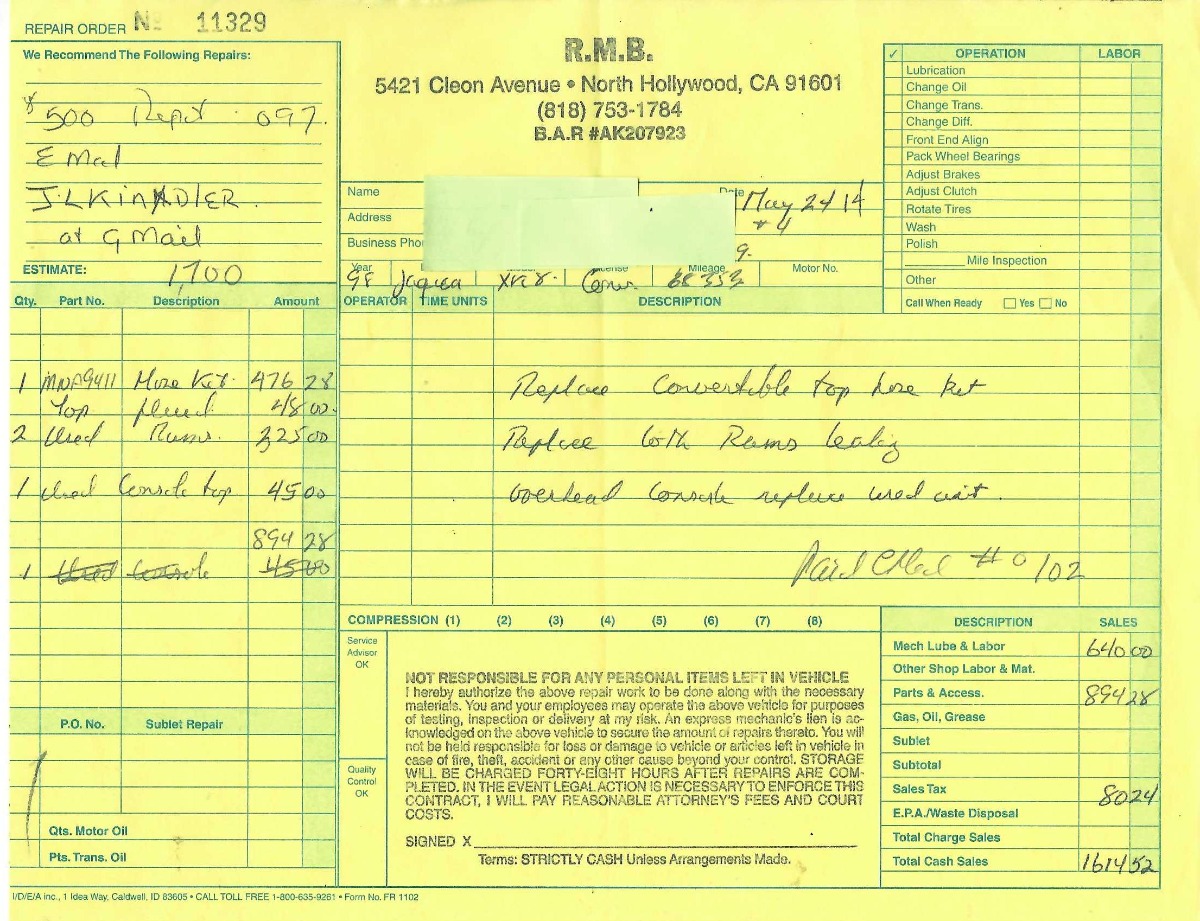 REPAIR ORDER No 11329
We Recommend The Following Repairs:
$500 097.
E Mail
J.LKINDLER.
at GMail
ESTIMATE: 1,700
R.M.B.
5421 Cleon Avenue • North Hollywood, CA 91601
(818) 753-1784
B.A.R #AK207923
Name
Date May 24 14
Address
#4
Business Pho
9.
Year Mileage Motor No.
98 XK8. Conv. 68353
✓ OPERATION LABOR
Lubrication
Change Oil
Change Trans.
Change Diff.
Front End Align
Pack Wheel Bearings
Adjust Brakes
Adjust Clutch
Rotate Tires
Wash
Polish
Mile Inspection
Other
Call When Ready Yes No
Qty. Part No. Description Amount
1 MNA9411 Hose Kit. 476 28
Top 48 00.
2 Used Rams. 325 00
1 Used Console top 45 00
894 28
1 Used Console 45 00
OPERATOR TIME UNITS DESCRIPTION
Replace Convertible top hose kit
Replace both Rams leaking
overhead Console replace used unit.
Paid #0102
P.O. No. Sublet Repair
Qts. Motor Oil
Pts. Trans. Oil
COMPRESSION (1) (2) (3) (4) (5) (6) (7) (8)
Service
Advisor
OK
Quality
Control
OK
NOT RESPONSIBLE FOR ANY PERSONAL ITEMS LEFT IN VEHICLE
I hereby authorize the above repair work to be done along with the necessary
materials. You and your employees may operate the above vehicle for purposes
of testing, inspection or delivery at my risk. An express mechanic's lien is ac-
knowledged on the above vehicle to secure the amount of repairs thereto. You will
not be held responsible for loss or damage to vehicle or articles left in vehicle in
case of fire, theft, accident or any other cause beyond your control. STORAGE
WILL BE CHARGED FORTY-EIGHT HOURS AFTER REPAIRS ARE COM-
PLETED. IN THE EVENT LEGAL ACTION IS NECESSARY TO ENFORCE THIS
CONTRACT, I WILL PAY REASONABLE ATTORNEY'S FEES AND COURT
COSTS.
SIGNED X
Terms: STRICTLY CASH Unless Arrangements Made.
DESCRIPTION SALES
Mech Lube & Labor 640 00
Other Shop Labor & Mat.
Parts & Access. 894 28
Gas, Oil, Grease
Sublet
Subtotal
Sales Tax 80 24
E.P.A./Waste Disposal
Total Charge Sales
Total Cash Sales 1614 52
I/D/E/A inc., 1 Idea Way, Caldwell, ID 83605 • CALL TOLL FREE 1-800-635-9261 • Form No. FR 1102